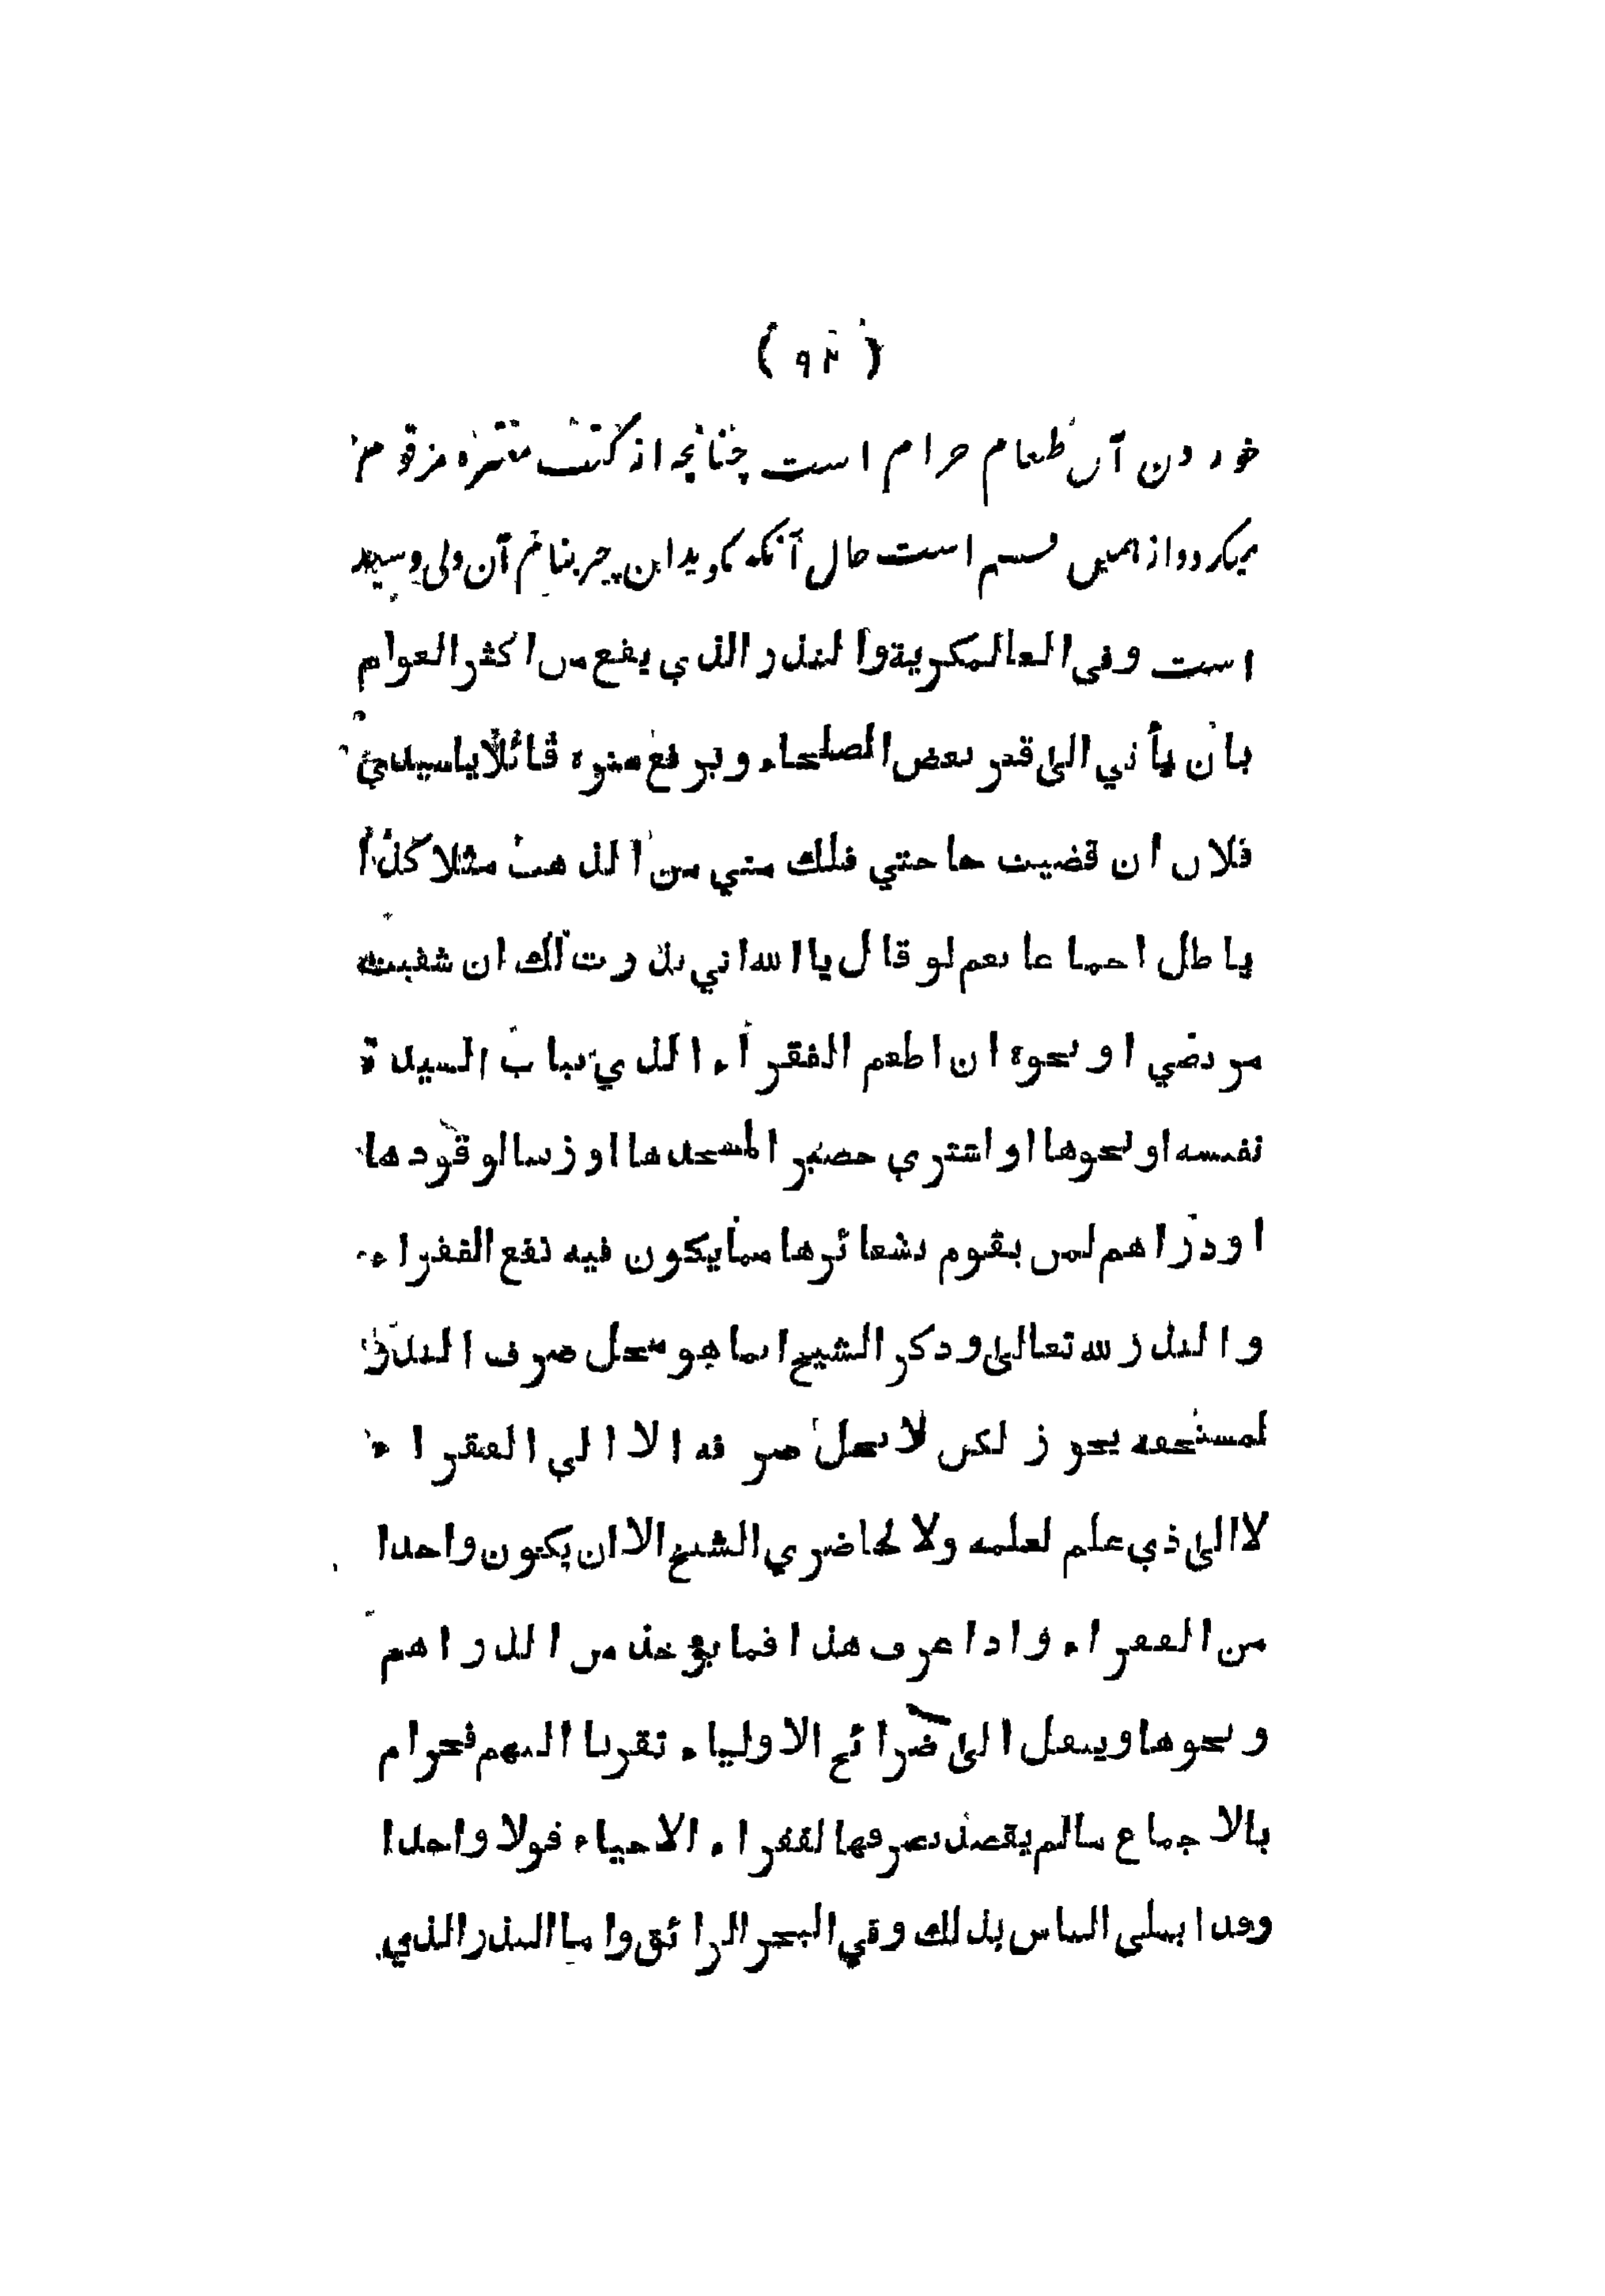 ( ٩٢ )
خوردن آن طعام حرام است چنانچه از کتب معتبره مرقوم
میگردد و از همین قسم است حال آنکه گوید این چیز بنام آن ولی و سید
است وفی العالمکریة والنذر الذي یقع من اکثر العوام
بان یأتي الی قبر بعض الصلحاء ویرفع ستره قائلا یاسیدي
فلان ان قضیت حاجتي فلك مني من الذهب مثلا کذا
باطل اجماعا نعم لو قال یا الله اني نذرت لك ان شفیت
مریضي او نحوه ان اطعم الفقراء الذي بباب السیدة
نفیسه او نحوها او اشتري حصیر المسجدها او زیتا لوقودها
او دراهم لمن یقوم بشعائرها مما یکون فیه نفع الفقراء
والنذر لله تعالی وذکر الشیخ انما هو محل صرف النذر
لمستحقه یجوز لکن لا یحل صرفه الا الی الفقراء
لا الی ذي علم لعلمه ولا لحاضري الشیخ الا ان یکون واحدا
من الفقراء واذا عرف هذا فما یؤخذ من الدراهم
ونحوها وینقل الی ضرائح الاولیاء تقربا الیهم فحرام
بالاجماع مالم یقصد بصرفها لفقراء الاحیاء قولا واحدا
وقد ابتلی الناس بذلك وفي البحر الرائق واما النذر الذي